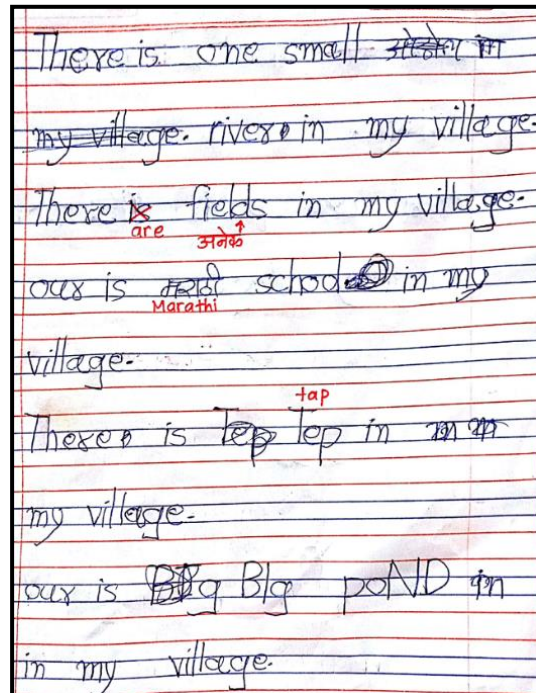 There is one small in
my village. river in my village.
There is fields in my village.
are अनेक ↑
our is मराठी school in my
Marathi
village.
tap
There is Tep Tep in
my village.
our is Big BIg poND in
in my village.